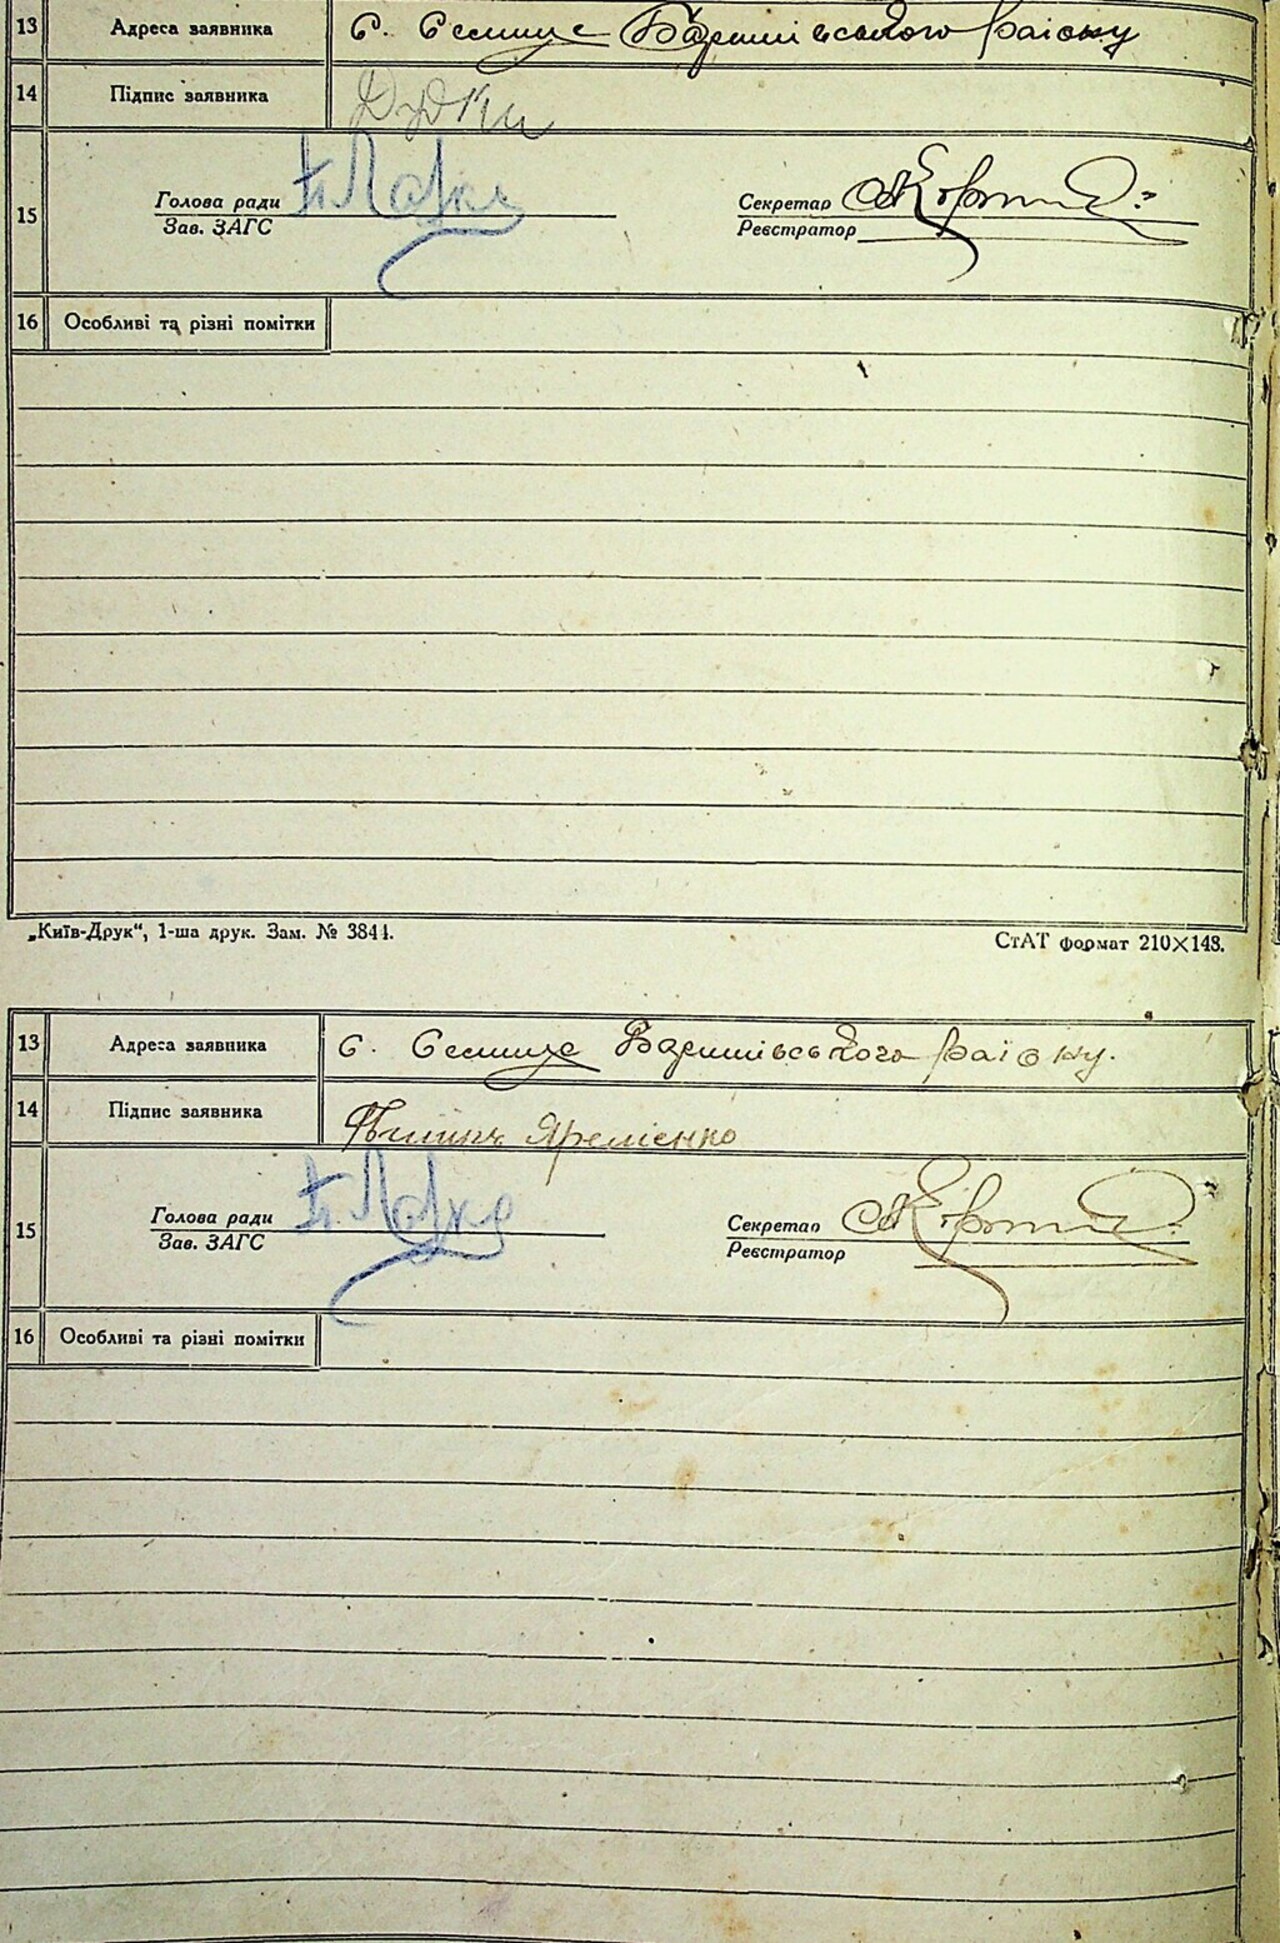 13 Адреса заявника с. Селище Баришівського району
14 Підпис заявника
15 Голова ради Секретар
Зав. ЗАГС Реєстратор
16 Особливі та різні помітки
„Київ-Друк“, 1-ша друк. Зам. № 3844. СтАТ формат 210×148.
13 Адреса заявника с. Селище Баришівського району.
14 Підпис заявника Яременко
15 Голова ради Секретар
Зав. ЗАГС Реєстратор
16 Особливі та різні помітки